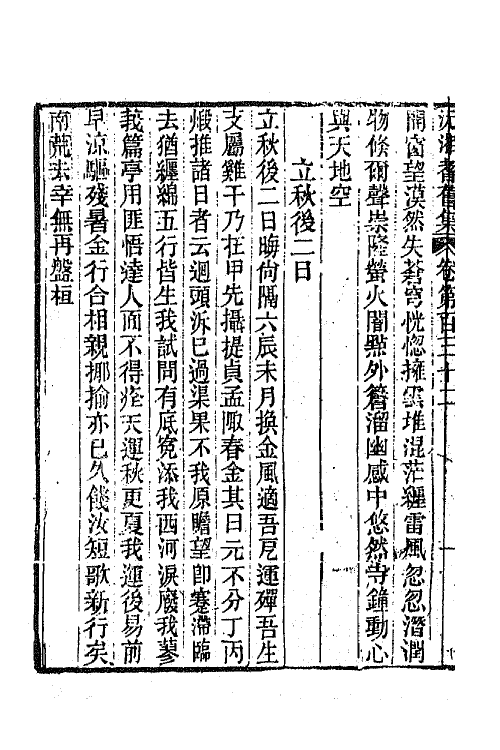 沅湘耆舊集 卷第百三十二
開窗望漠然失蒼穹恍惚擁雲堆混茫纏雷風忽忽潛潤
物候爾聲崇隆螢火闇點外簷溜幽感中悠然寺鐘動心
與天地空
立秋後二日
立秋後二日晦尙隔六辰未月換金風適吾戹運殫吾生
支屬雞干乃在甲先攝提貞孟陬春金其日元不分丁丙
煅推諸日者云迴頭泝已過渠果不我原瞻望卽蹇滯臨
去猶纏綿五行皆生我試問有底寃添我西河淚廢我蓼
莪篇亭用匪悟達人面不得痊天運秋更夏我運後易前
早涼驅殘暑金行合相親揶揄亦已久餞汝短歌新行矣
南荒去幸無再盤桓